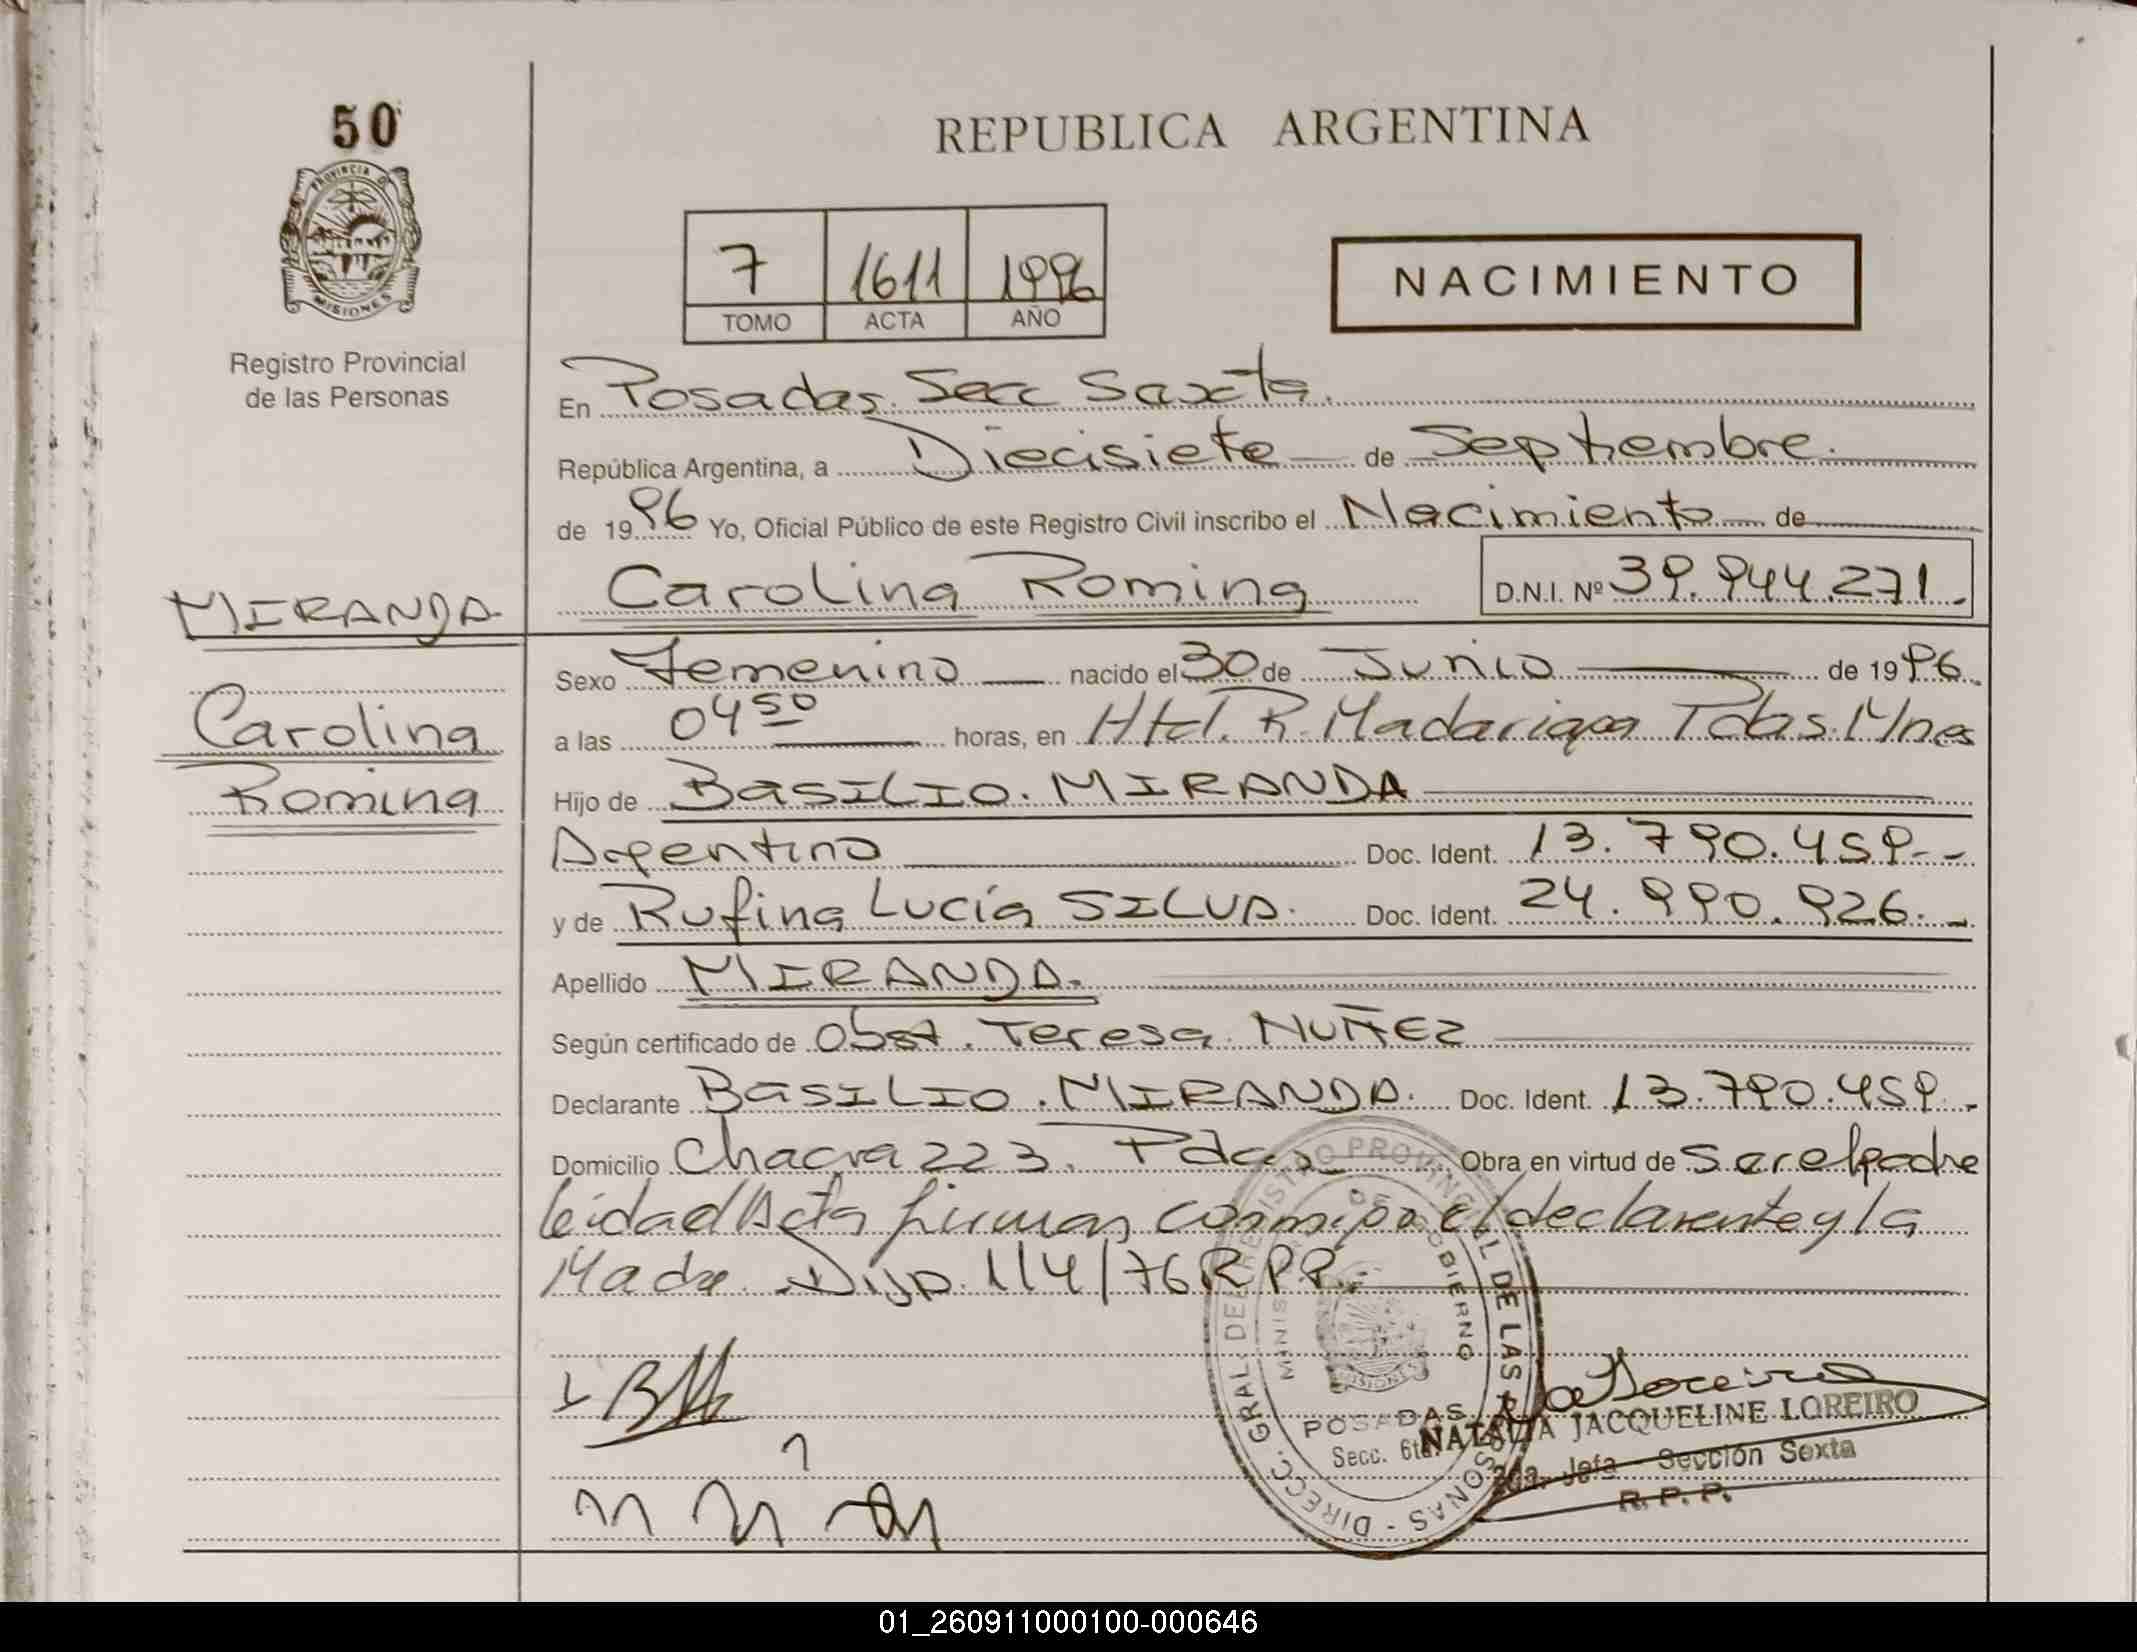 50
REPUBLICA ARGENTINA
PROVINCIA D
MISIONES
Registro Provincial
de las Personas
7 1611 1996
TOMO ACTA AÑO
NACIMIENTO
En Posadas. Secc Saxta.
República Argentina, a Diecisiete de Septiembre.
de 1996 Yo, Oficial Público de este Registro Civil inscribo el Nacimiento de
Carolina Romina D.N.I. Nº 39.944.271.
MIRANDA
Carolina
Romina
Sexo Femenino nacido el 30 de Junio de 1996.
a las 04 50 horas, en Htal. R. Madariaga Pdas. Mnes
Hijo de BASILIO. MIRANDA
Argentino Doc. Ident. 13.790.459.--
y de Rufina Lucía SILVA. Doc. Ident. 24.990.926.-
Apellido MIRANDA.
Según certificado de Obst. Teresa NUÑEZ
Declarante BASILIO. MIRANDA. Doc. Ident. 13.790.459.-
Domicilio Chacra 223. Pdas Obra en virtud de ser el padre
leidad Acta firman conmigo el declarante y la
Madre. Disp. 114/76 R P P.-
DIRECC. GRAL. DEL REGISTRO PROVINCIAL DE LAS PERSONAS -
DE GOBIERNO
MISIONES
POSADAS
Secc. 6ta.
Loreiro
NATALIA JACQUELINE LOREIRO
2da. Jefa Sección Sexta
R. P. P.
01_260911000100-000646